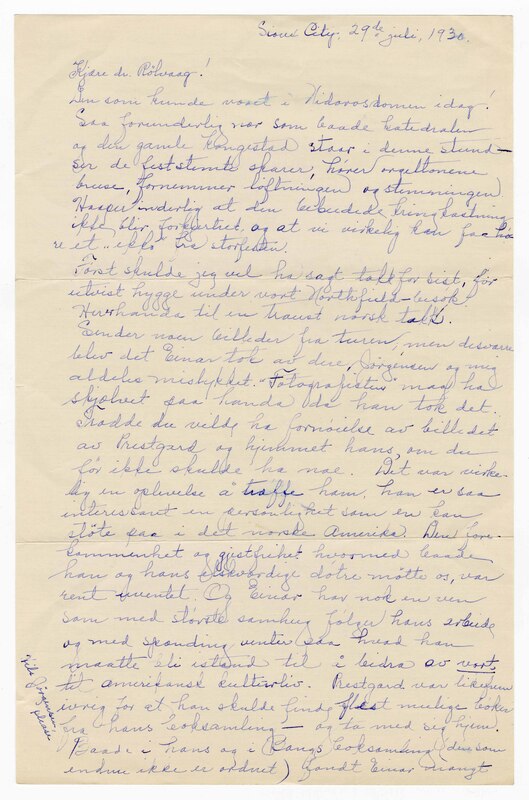 Sioux City, 29de juli, 1930.
Kjære du Rölvaag!
Den som kunde været i Nidarosdomen idag!
Saa forunderlig nær som baade katedralen
og den gamle kongestad staar i denne stund—
ser de feststemte skarer, hører orgeltonene
bruse, fornemmer löftningen og stemningen
Haaper inderlig at den bebudede kringkastning
ikke blir forkludret og at vi virkelig kan faa hö
re et "ekko" fra storfesten.
Först skulde jeg vel ha sagt takk for sist, for
utvist hygge under vort Northfield-besök.
Herrhanda til en traust norsk takk.
Sender noen billeder fra turen, men desværre
blev det Einar tok av dere, Jörgensen og mig
aldeles mislykket. "Fotografisten" maa ha
skjælvet paa handa da han tok det.
Trodde du vilde ha fornöielse av billedet
av Prestgard og hjemmet hans, om du
för ikke skulde ha noe. Det var virke-
lig en oplevelse å träffe ham, han er saa
interessant en personlighet som en kan
stöte paa i det norske Amerika. Den fore-
kommenhet og gjestfrihet hvormed baade
han og hans elskværdige dötre mötte os, var
rent uventet. Og Einar har nok en ven
som med största samhug fölger hans arbeide
og med spænding venter paa hvad han
maatte bli istand til i bidra av vort
til amerikansk culturliv. Prestgard var likefrem
ivrig for at han skulde finde flest mulige böker
fra hans boksamling— og ta med sig hjem.
Baade i hans og i Rangs boksamling (den som
endnu ikke er ordnet) fandt Einar mangt
Hils Jörgensen
please